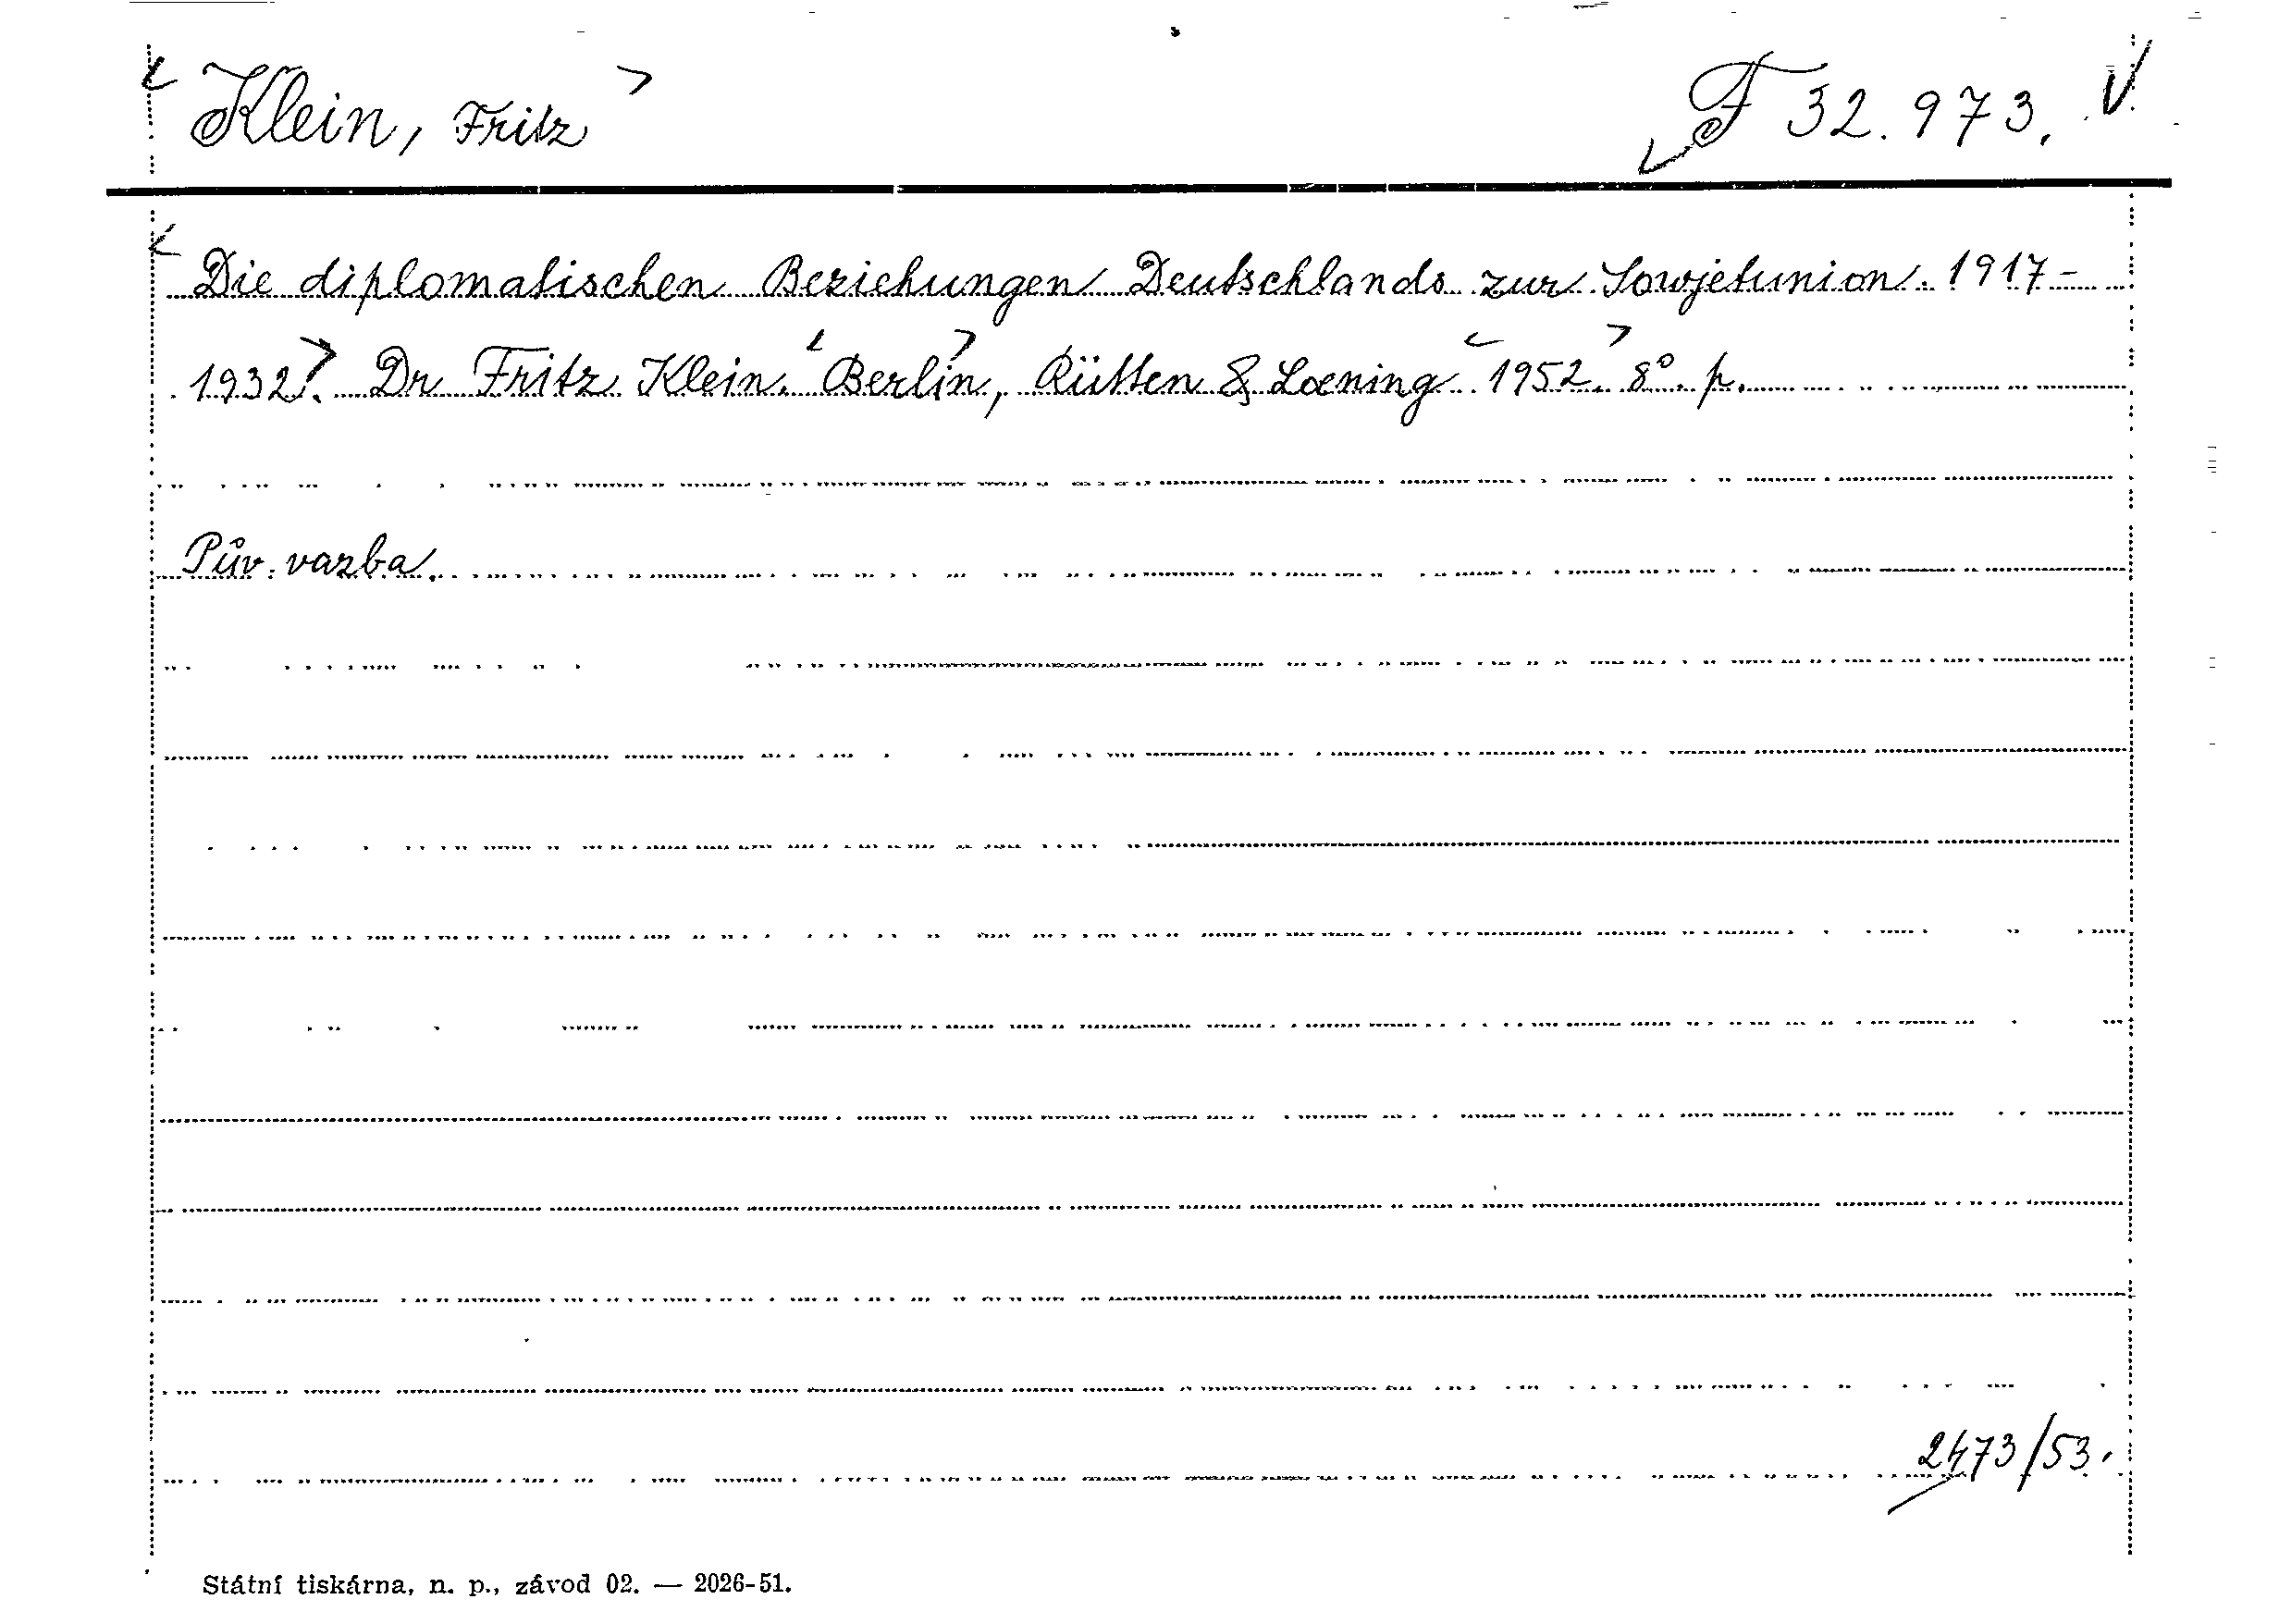 Klein, Fritz
F 32.973.
Die diplomatischen Beziehungen Deutschlands zur Sowjetunion. 1917-
1932. Dr Fritz Klein. Berlin, Rütten & Loening 1952. 8°. p.
Pův. vazba.
2473/53.
Státní tiskárna, n. p., závod 02. — 2026-51.